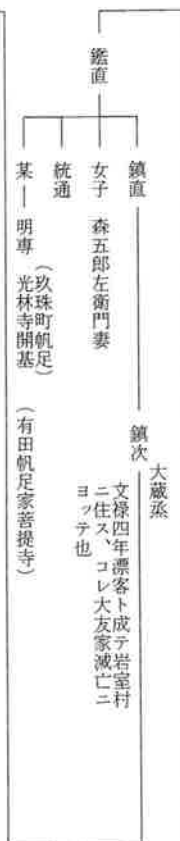 鑑直
鎮直
鎮次
大蔵烝
文禄四年漂客ト成テ岩室村
ニ住ス、コレ大友家滅亡ニ
ヨッテ也
女子 森五郎左衛門妻
統通
某
明専
(玖珠町帆足)
光林寺開基
(有田帆足家菩提寺)